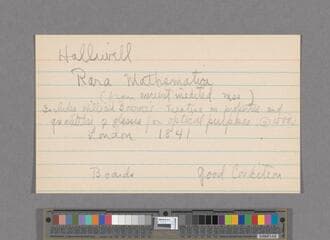 Halliwell
Rara Mathematica
(from ancient inedited mss)
Includes William Bourne's treatise on properties and
qualities of glasses for optical purposes
London 1841
Boards good Condition